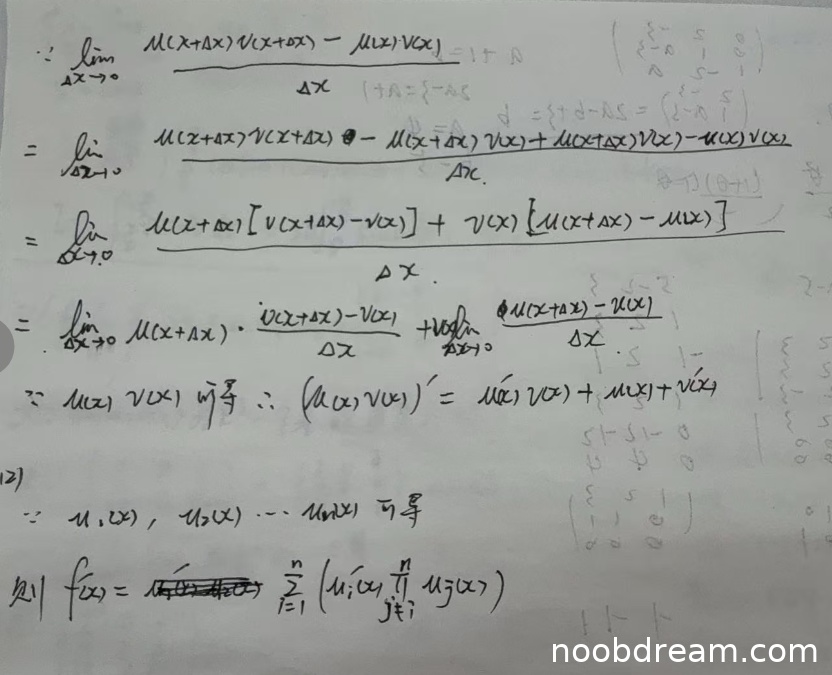 ∵ lim Δx→0 (u(x+Δx)v(x+Δx) − u(x)·v(x)) / Δx
= lim Δx→0 (u(x+Δx)v(x+Δx) − u(x+Δx)v(x) + u(x+Δx)v(x) − u(x)v(x)) / Δx.
= lim Δx→0 (u(x+Δx)[v(x+Δx)−v(x)] + v(x)[u(x+Δx) − u(x)]) / Δx.
= lim Δx→0 u(x+Δx) · (v(x+Δx)−v(x)) / Δx + v(x) lim Δx→0 (u(x+Δx) − u(x)) / Δx.
∵ u(x) v(x) 可导 ∴ (u(x)v(x))′ = u′(x)v(x) + u(x) + v′(x)
(2)
∵ u₁(x), u₂(x) ⋯ uₙ(x) 可导
则 f′(x) = Σ i=1 n (uᵢ′(x) ∏ j≠i n uⱼ(x))
noobdream.com